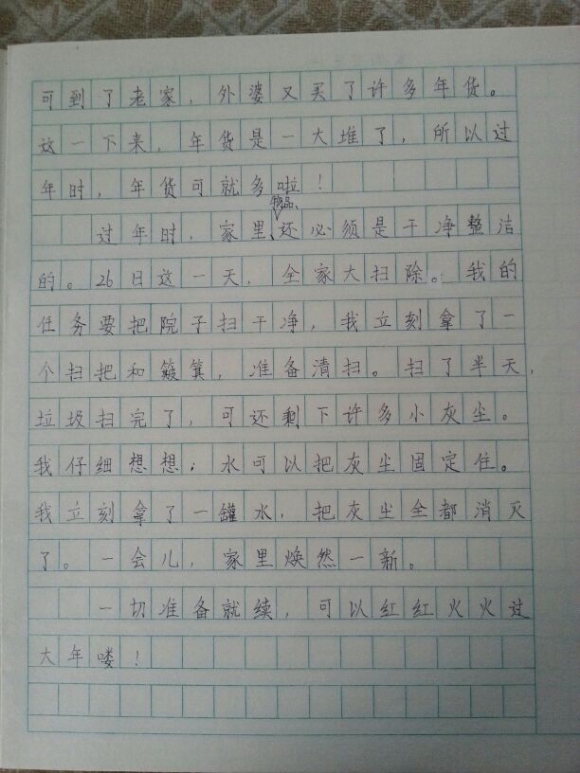 可到了老家，外婆又买了许多年货。
这一下来，年货是一大堆了，所以过
年时，年货可就多啦！
物品、
过年时，家里还必须是干净整洁
的。26日这一天，全家大扫除。我的
任务要把院子扫干净，我立刻拿了一
个扫把和簸箕，准备清扫。扫了半天，
垃圾扫完了，可还剩下许多小灰尘。
我仔细想想：水可以把灰尘固定住。
我立刻拿了一罐水，把灰尘全都消灭
了。一会儿，家里焕然一新。
一切准备就续，可以红红火火过
大年喽！